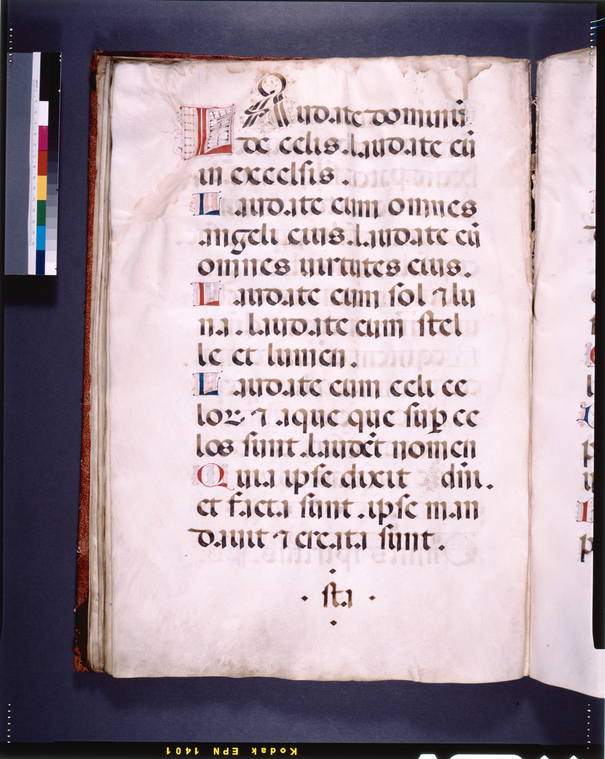 LAudate dominū
de celis. laudate eū
in excelsis.
Laudate eum omnes
angeli eius. laudate eū
omnes uirtutes eius.
Laudate eum sol ⁊ lu
na. laudate eum stel
le et lumen.
Laudate eum celi ce
loꝝ ⁊ aque que suꝑ ce
los sunt. laudēt nomen
Quia ipse dixit dñi.
et facta sunt. ipse man
dauit ⁊ creata sunt.
· sta ·
Kodak EPN 1401